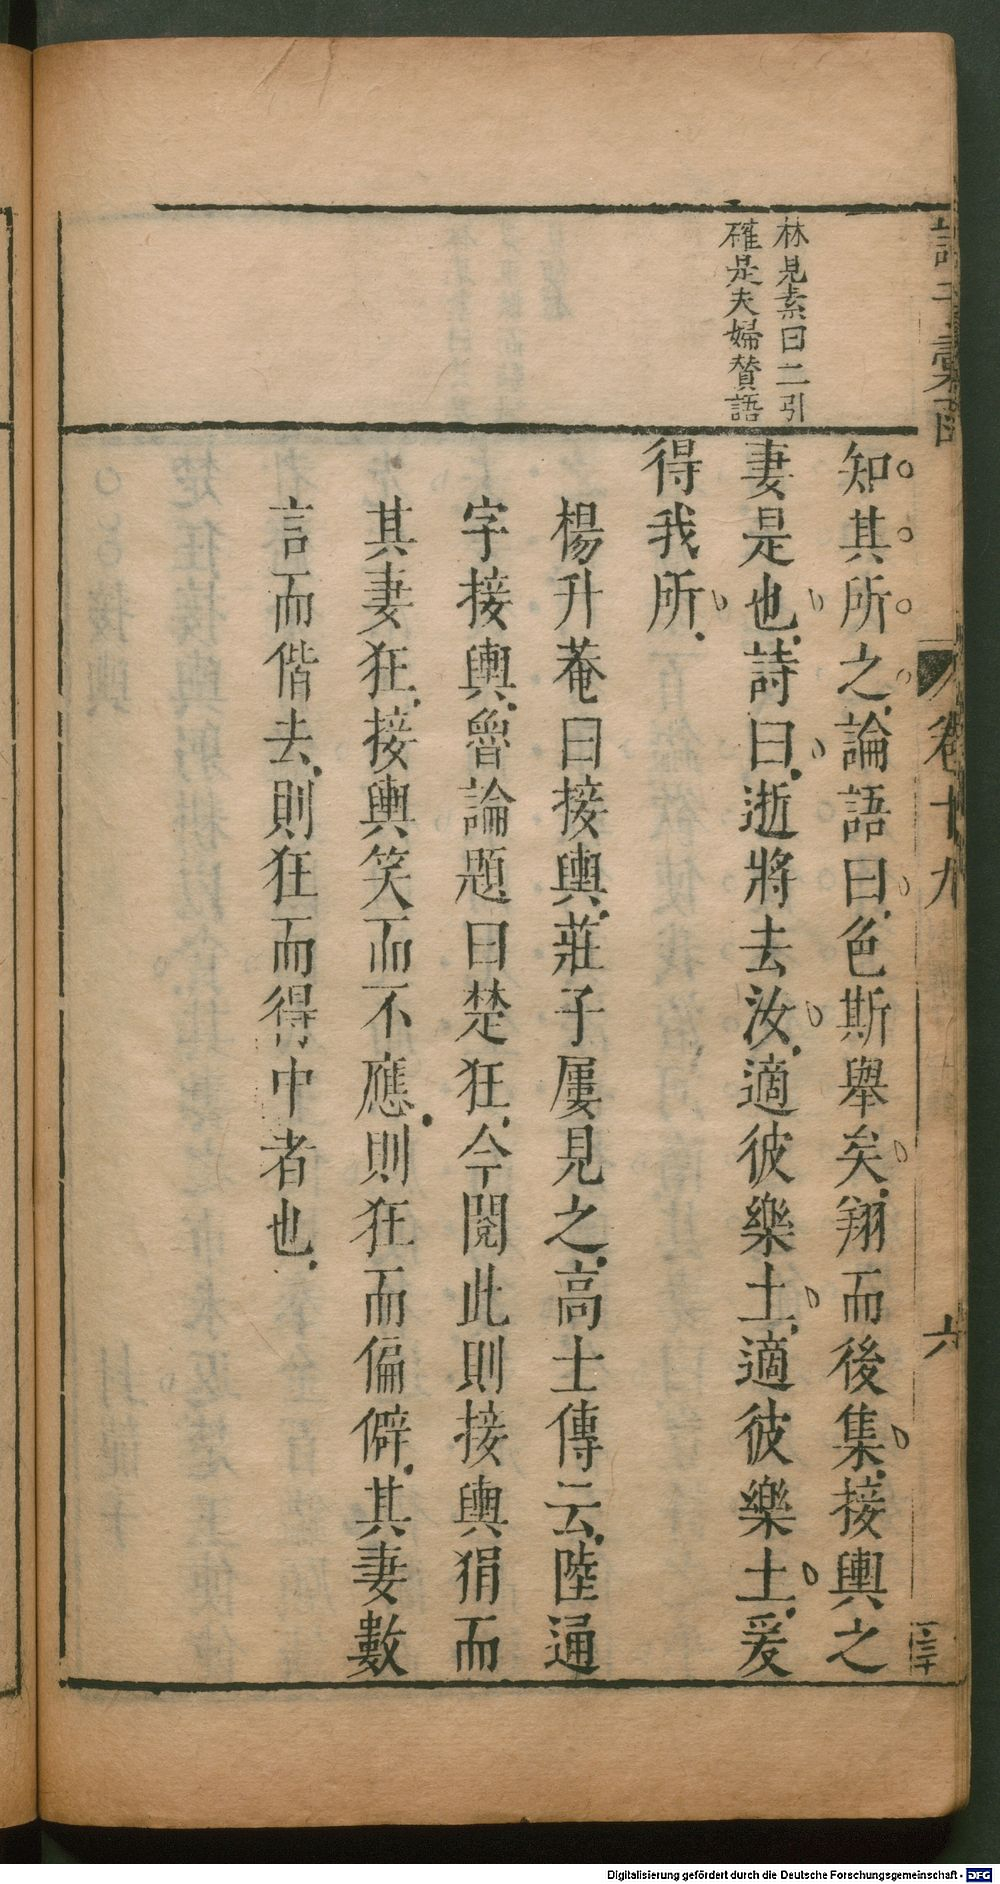 林見素曰二引
確是夫婦贊語
知其所之論語曰色斯舉矣翔而後集接輿之
妻是也詩曰逝將去汝適彼樂土適彼樂土爰
得我所
楊升菴曰接輿莊子屢見之高士傳云陸通
字接輿魯論題曰楚狂今閱此則接輿狷而
其妻狂接輿笑而不應則狂而偏僻其妻數
言而偕去則狂而得中者也
卷十九
六
Digitalisierung gefördert durch die Deutsche Forschungsgemeinschaft - DFG